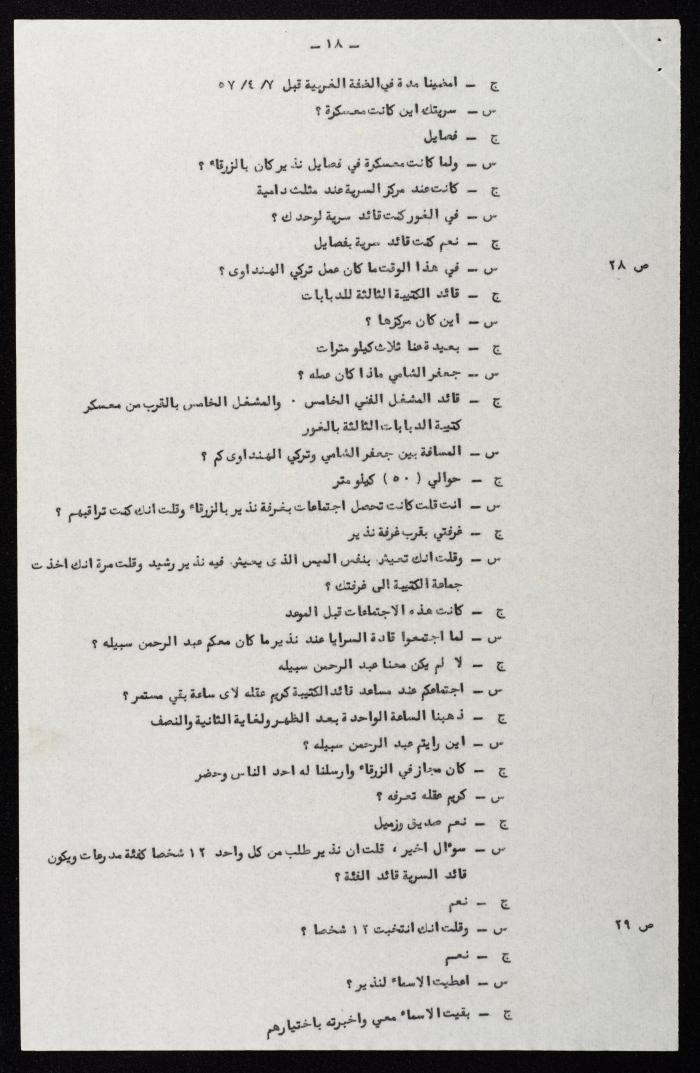 - ١٨ -
ج - امضينا مدة في الضفة الغربية قبل ٧/ ٤/ ٥٧
س - سريتك اين كانت معسكرة ؟
ج - فصايل
س - ولما كانت معسكرة في فصايل نذير كان بالزرقاء ؟
ج - كانت عند مركز السرية عند مثلث دامية
س - في الغور كنت قائد سرية لوحدك ؟
ج - نعم كنت قائد سرية بفصايل
ص ٢٨ س - في هذا الوقت ما كان عمل تركي الهنداوى ؟
ج - قائد الكتيبة الثالثة للدبابات
س - اين كان مركزها ؟
ج - بعيدة عنا ثلاث كيلو مترات
س - جعفر الشامي ماذا كان عمله ؟
ج - قائد المشغل الفني الخامس . والمشغل الخامس بالقرب من معسكر
كتيبة الدبابات الثالثة بالغور
س - المسافة بين جعفر الشامي وتركي الهنداوى كم ؟
ج - حوالي ( ٥٠ ) كيلو متر
س - انت قلت كانت تحصل اجتماعات بغرفة نذير بالزرقاء وقلت انك كنت تراقبهم ؟
ج - غرفتي بقرب غرفة نذير
س - وقلت انك تعيش بنفس الميس الذى يعيش فيه نذير رشيد وقلت مرة انك اخذت
جماعة الكتيبة الى غرفتك ؟
ج - كانت هذه الاجتماعات قبل الموعد
س - لما اجتمعوا قادة السرايا عند نذير ما كان معكم عبد الرحمن سبيله ؟
ج - لا لم يكن معنا عبد الرحمن سبيله
س - اجتماعكم عند مساعد قائد الكتيبة كريم عقله لاى ساعة بقي مستمر ؟
ج - ذهبنا الساعة الواحدة بعد الظهر ولغاية الثانية والنصف
س - اين رايتم عبد الرحمن سبيله ؟
ج - كان مجاز في الزرقاء وارسلنا له احد الناس وحضر
س - كريم عقله تعرفه ؟
ج - نعم صديق وزميل
س - سوءال اخير ، قلت ان نذير طلب من كل واحد ١٢ شخصا كفئة مدرعات ويكون
قائد السرية قائد الفئة ؟
ج - نعم
ص ٢٩ س - وقلت انك انتخبت ١٢ شخصا ؟
ج - نعم
س - اعطيت الاسماء لنذير ؟
ج - بقيت الاسماء معي واخبرته باختيارهم